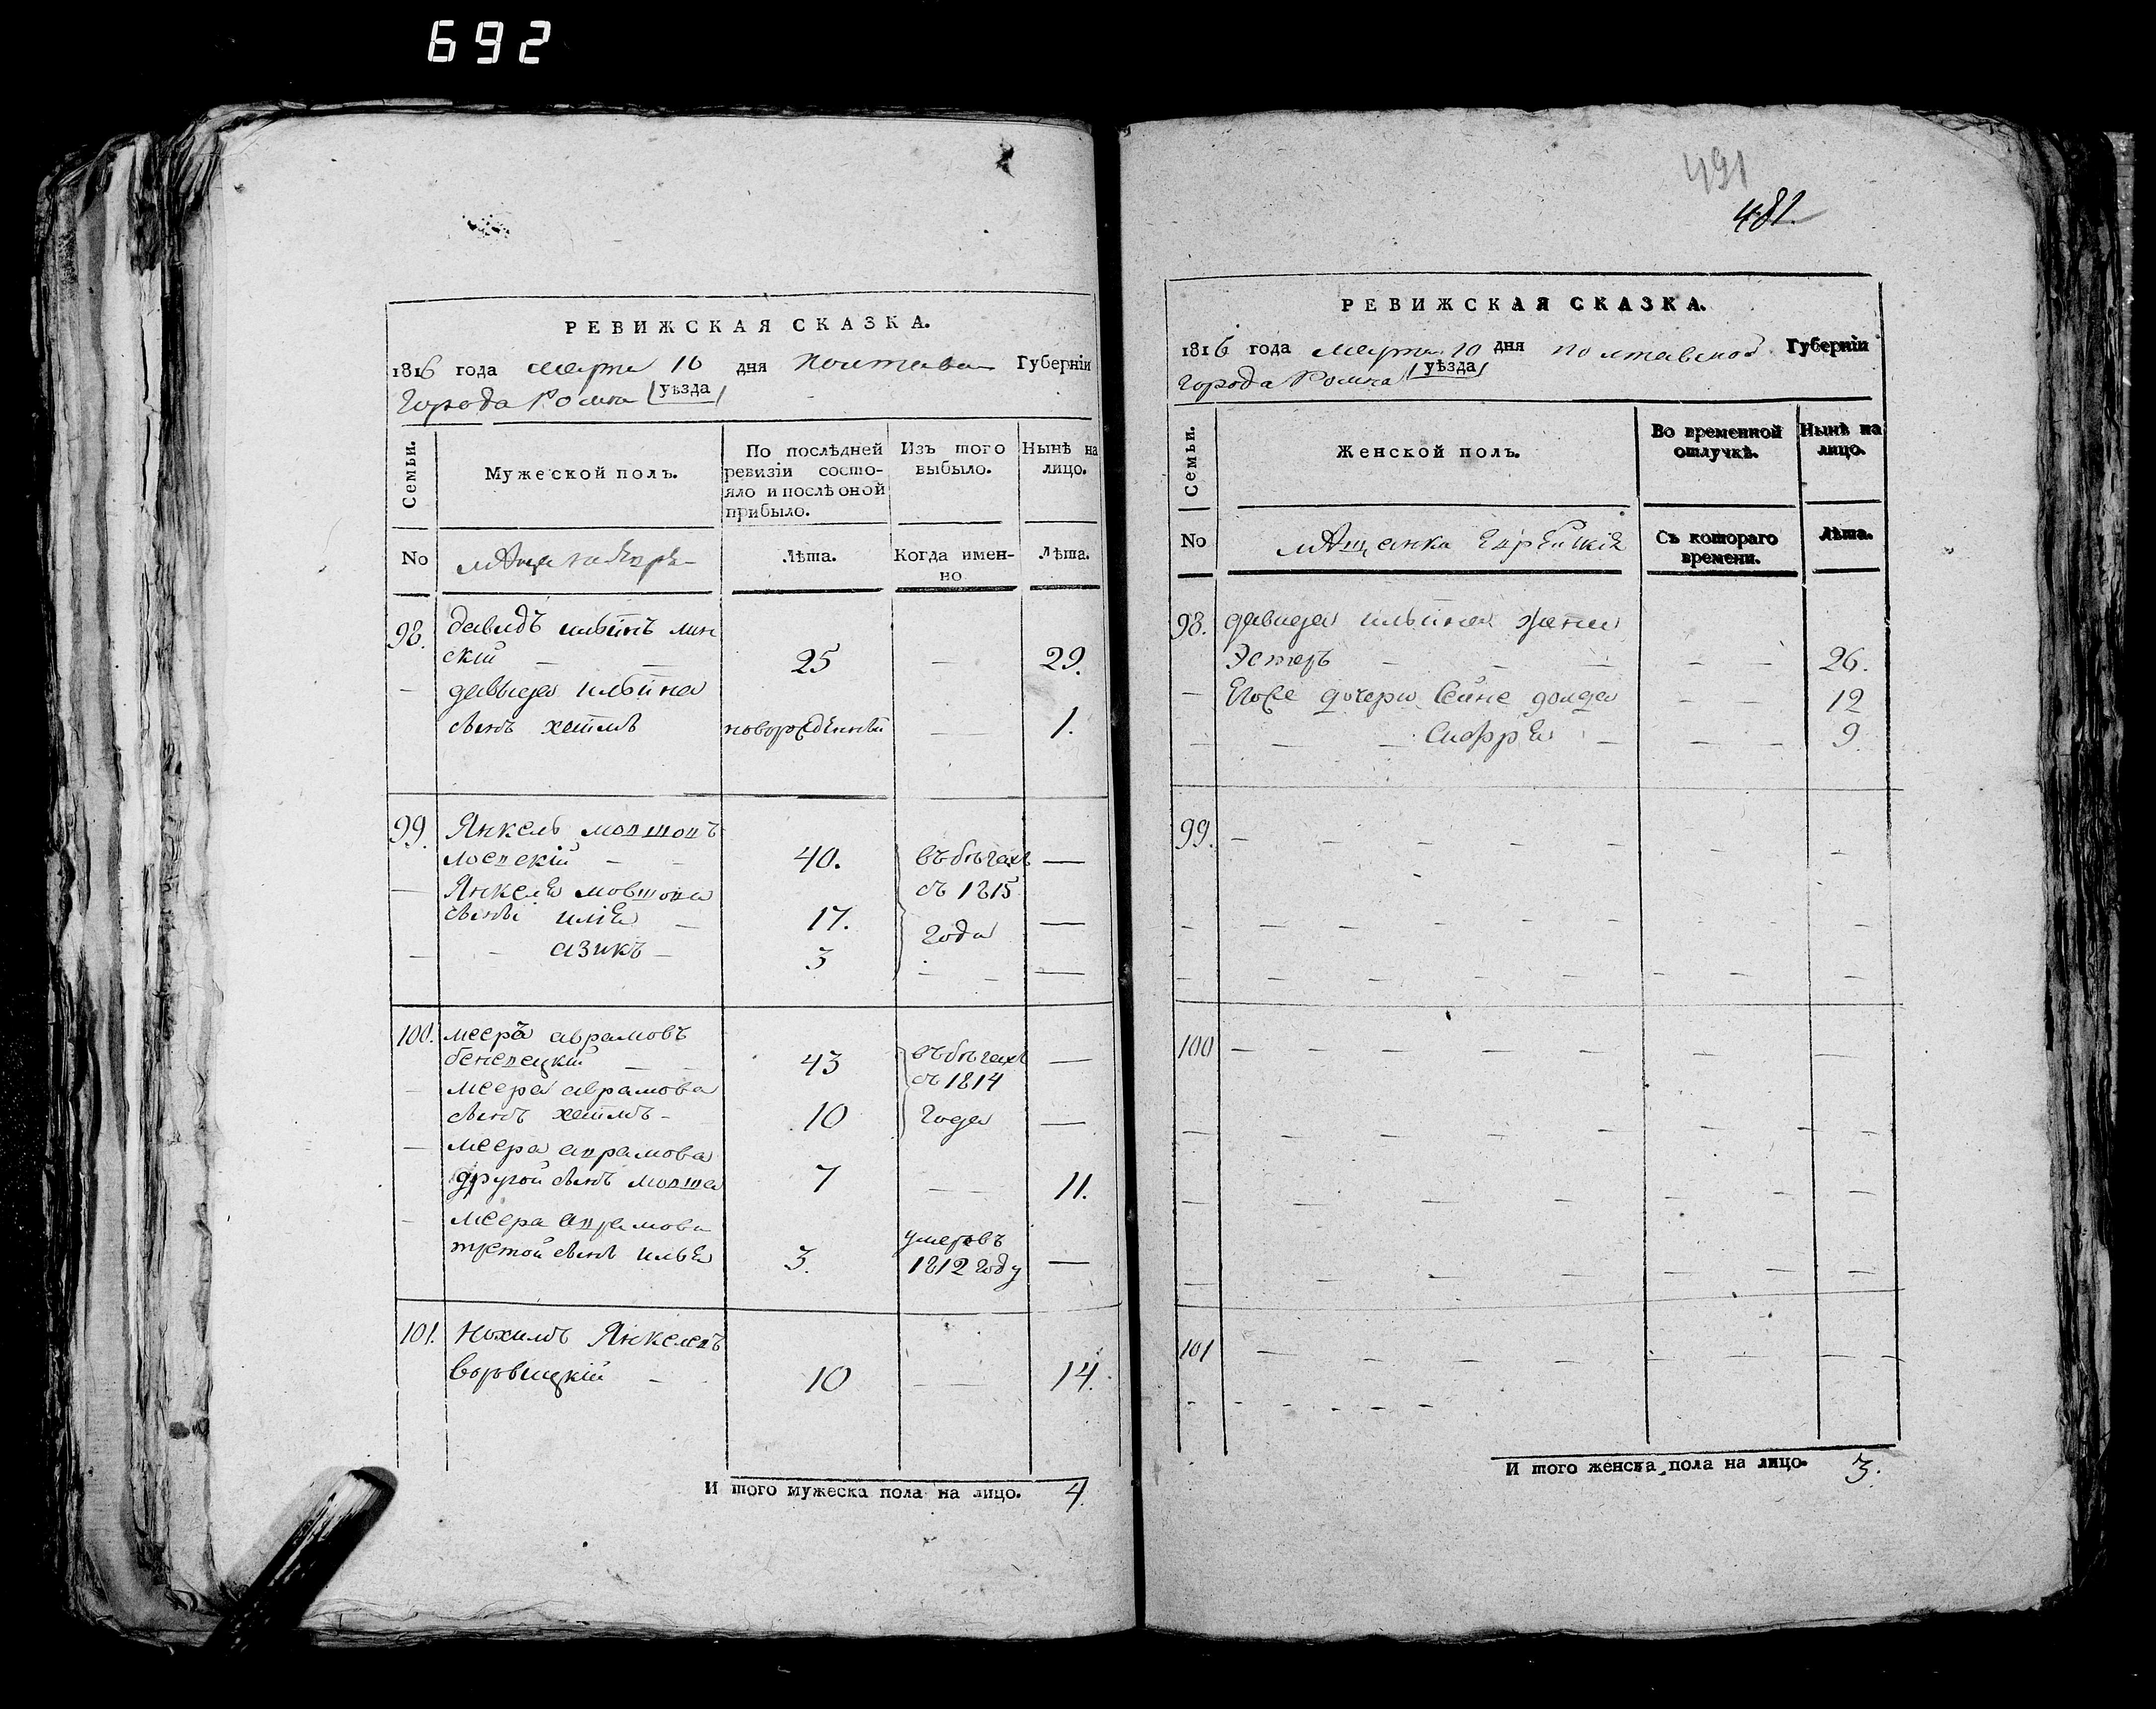 692
РЕВИЖСКАЯ СКАЗКА.
1816 года марта 10 дня Полтавско Губерніи
Города Ромна (уѣзда)
Семьи.
Мужеской полъ.
По послѣдней ревизіи состо-
яло и послѣ оной прибыло.
Изъ того выбыло.
Нынѣ на лицо.
No
Лѣта.
Когда имен-
но
Лѣта.
98. давидъ ильинъ мин
скій — — 25 — 29.
— давыда ильина
сынъ хаимъ новорожденный — 1.
99. Янкель мовшовъ
лоевскій — — 40. въ бѣгахъ —
— Янкеля мовшова с 1815
сыны илія — 17. года —
— — азикъ — 3 — — —
100. мееръ аврамовъ
бенецкій — — 43 въ бѣгахъ —
— меера аврамова с 1814
сынъ хаимъ — 10 года —
— меера аврамова
другой сынъ мовша 7 — 11.
— меера аврамова
третой сынъ илья 3. умеръ въ 1812 году —
101. Нохимъ Янкелевъ
10 — 14.
И того мужеска пола на лицо. 4.
491
481.
РЕВИЖСКАЯ СКАЗКА.
1816 года марта 10 дня полтавской Губерніи
города Ромна (уѣзда)
Семьи.
Женской полъ.
Во временной отлучкѣ.
Нынѣ на лицо.
No
мѣщанка еврейскія
Съ котораго времени.
Лѣта.
98. давида ильина жена
Эстеръ — — — — — 26.
— Егоже дочери — — 12
— — — — — — 9
99. — — — —
100 — — — — — — — —
101 — — — — — — — —
И того женска пола на лицо. 3.